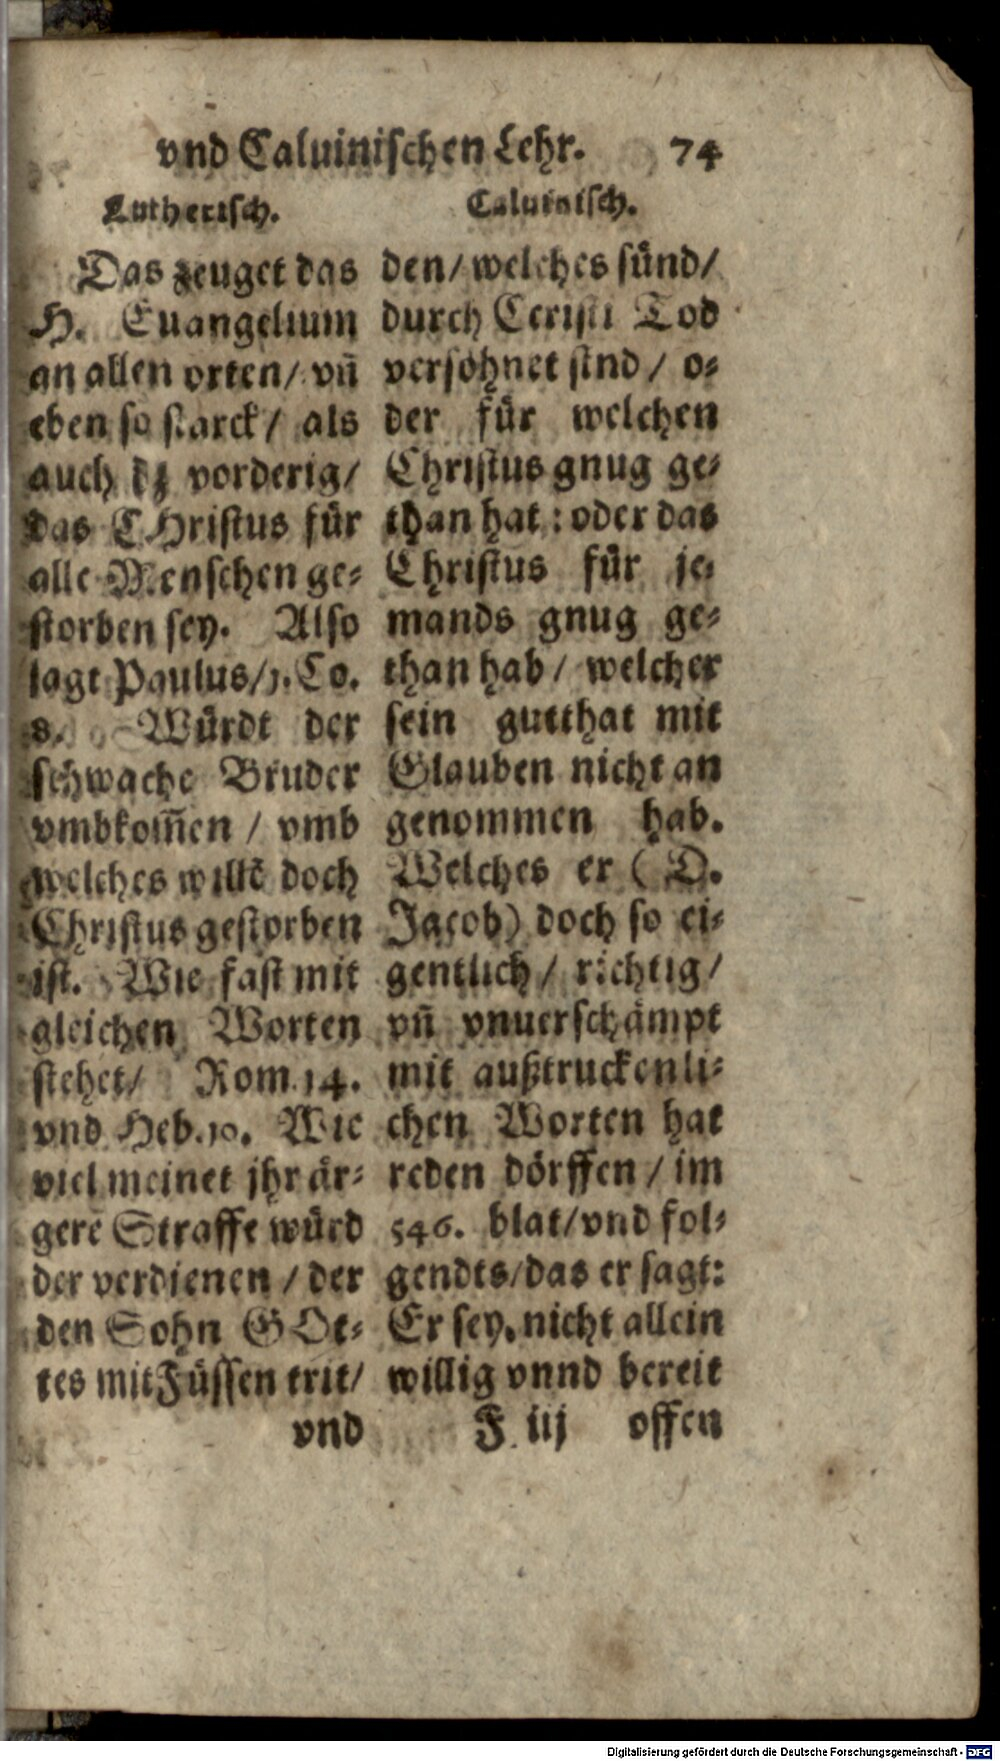 vnd Caluinischen Lehr. 74
Lutherisch.
Das zeuget das
H. Euangelium
an allen orten/ vñ
eben so starck/ als
auch dz vorderig/
das CHristus für
alle Menschen ge-
storben sey. Also
sagt Paulus/1. Co.
8. Würdt der
schwache Bruder
vmbkom̃en / vmb
welches willẽ doch
Christus gestorben
ist. Wie fast mit
gleichen Worten
stehet/ Rom. 14.
vnd Heb. 10. Wie
viel meinet jhr är-
gerẽ Straffe würd
der verdienen / der
den Sohn GOt-
tes mit Füssen trit/
vnd
Caluinisch.
den/ welches sünd/
durch Ceristi Tod
versöhnet sind / o-
der für welchen
Christus gnug ge-
than hat: oder das
Christus für je-
mands gnug ge-
than hab/ welcher
sein gutthat mit
Glauben nicht an
genommen hab.
Welches er ( D.
Jacob) doch so ei-
gentlich / richtig/
vñ vnuerschämpt
mit außtruckenli-
chen Worten hat
reden dörffen / im
546. blat/vnd fol-
gendts/das er sagt:
Er sey, nicht allein
willig vnnd bereit
F iij offen
Digitalisierung gefördert durch die Deutsche Forschungsgemeinschaft - DFG